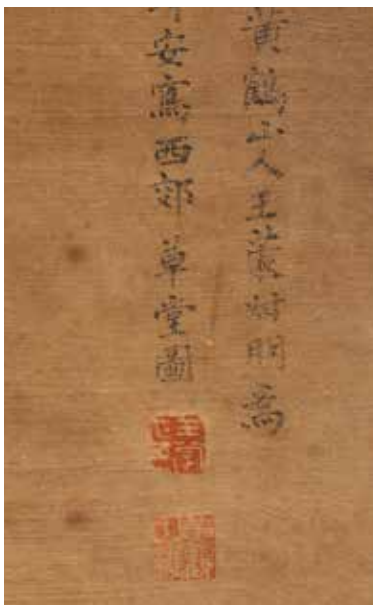 黃鶴山人王蒙叔明為
安寫西郊草堂圖